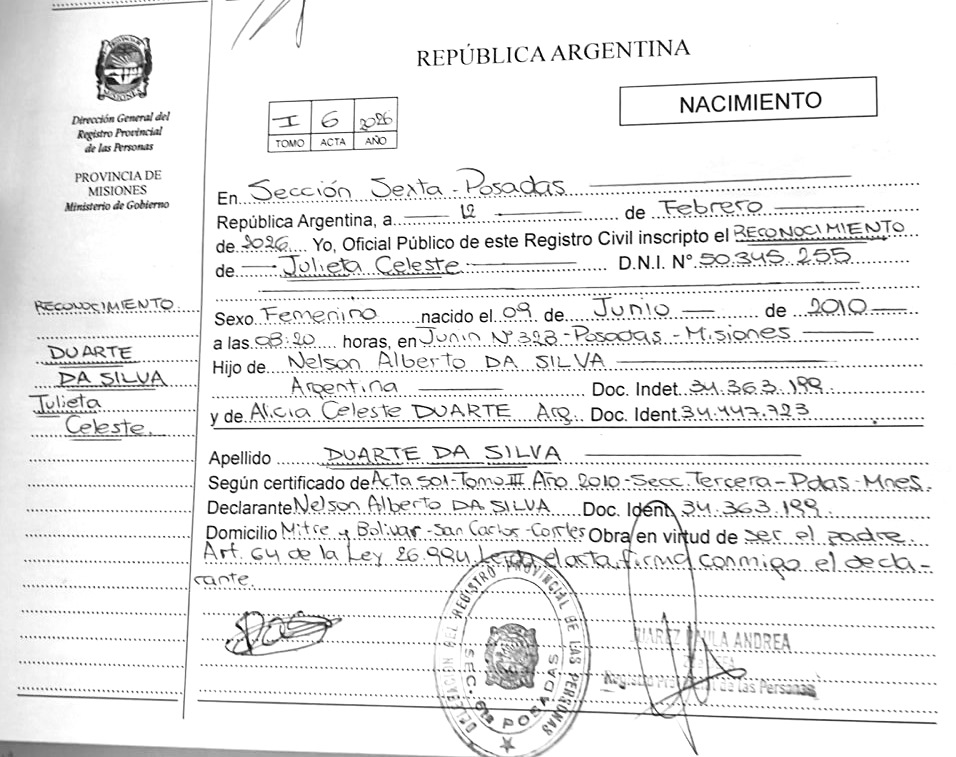 REPÚBLICA ARGENTINA
NACIMIENTO
Dirección General del
Registro Provincial
de las Personas
PROVINCIA DE
MISIONES
Ministerio de Gobierno
I 6 2026
TOMO ACTA AÑO
En Sección Sexta - Posadas
República Argentina, a 12 de Febrero
de 2026 Yo, Oficial Público de este Registro Civil inscripto el RECONOCIMIENTO
de Julieta Celeste D.N.I. N° 50.345.255
Sexo Femenino nacido el 09 de Junio de 2010
a las 08:20 horas, en Junin N° 323 - Posadas - Misiones
Hijo de Nelson Alberto DA SILVA
Argentina Doc. Indet 34.363.199
y de Alicia Celeste DUARTE Arg. Doc. Ident 34.447.723
Apellido DUARTE DA SILVA
Según certificado de Acta 501-Tomo III Año 2010-Secc. Tercera-Pdas-Mnes.
Declarante Nelson Alberto DA SILVA Doc. Ident 34.363.199
Domicilio Mitre y Bolivar - San Carlos - Corrtes Obra en virtud de ser el padre
Art. 64 de la Ley 26.994. Leída el acta, firma conmigo el decla-
rante.
RECONOCIMIENTO
DUARTE
DA SILVA
Julieta
Celeste.
DELEGACION DEL REGISTRO PROVINCIAL DE LAS PERSONAS
SEC. 6ta POSADAS
PAULA ANDREA
de las Personas